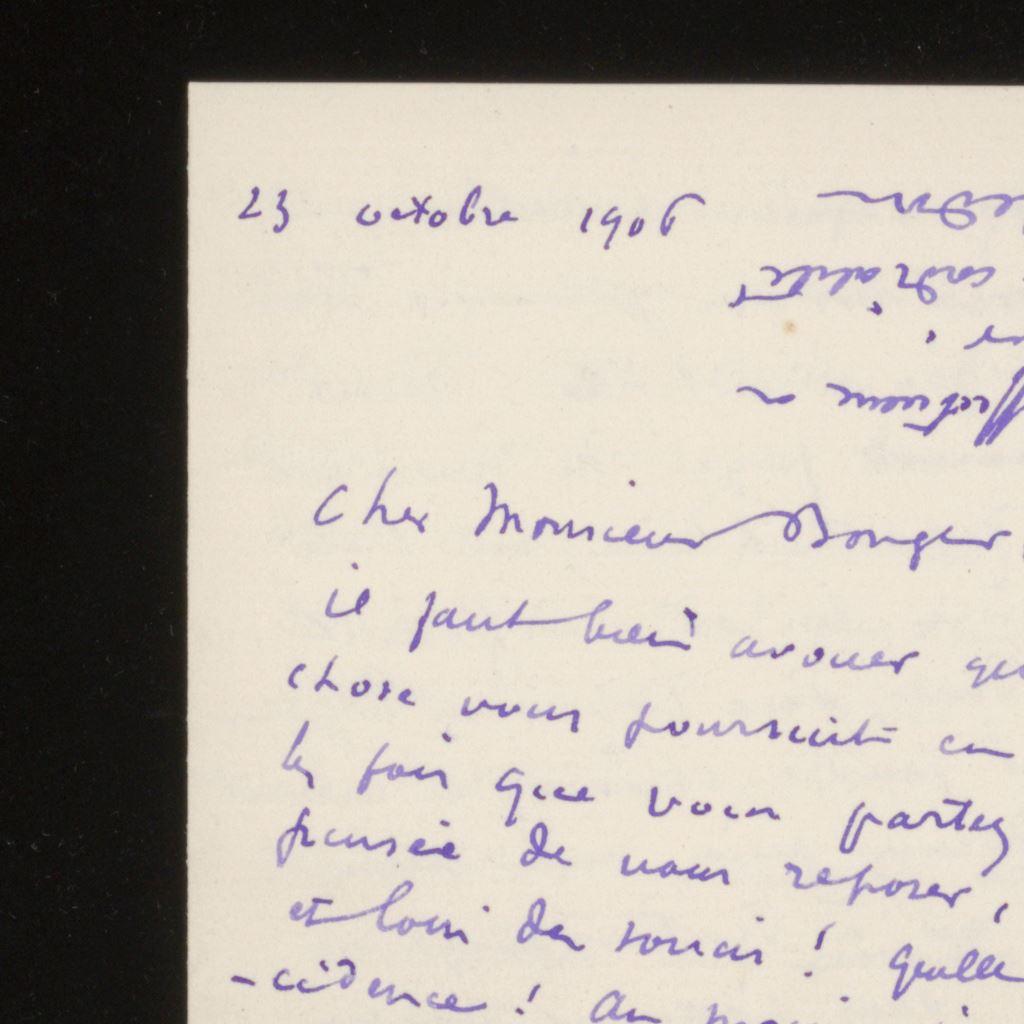 23 octobre 1906
Cher Monsieur Bonger,
il faut bien avouer
chose vous poursuit
les fois que vous partez
pensée de vous reposer,
et loin des soucis ! Quelle
-cidence ! Au
cordialité